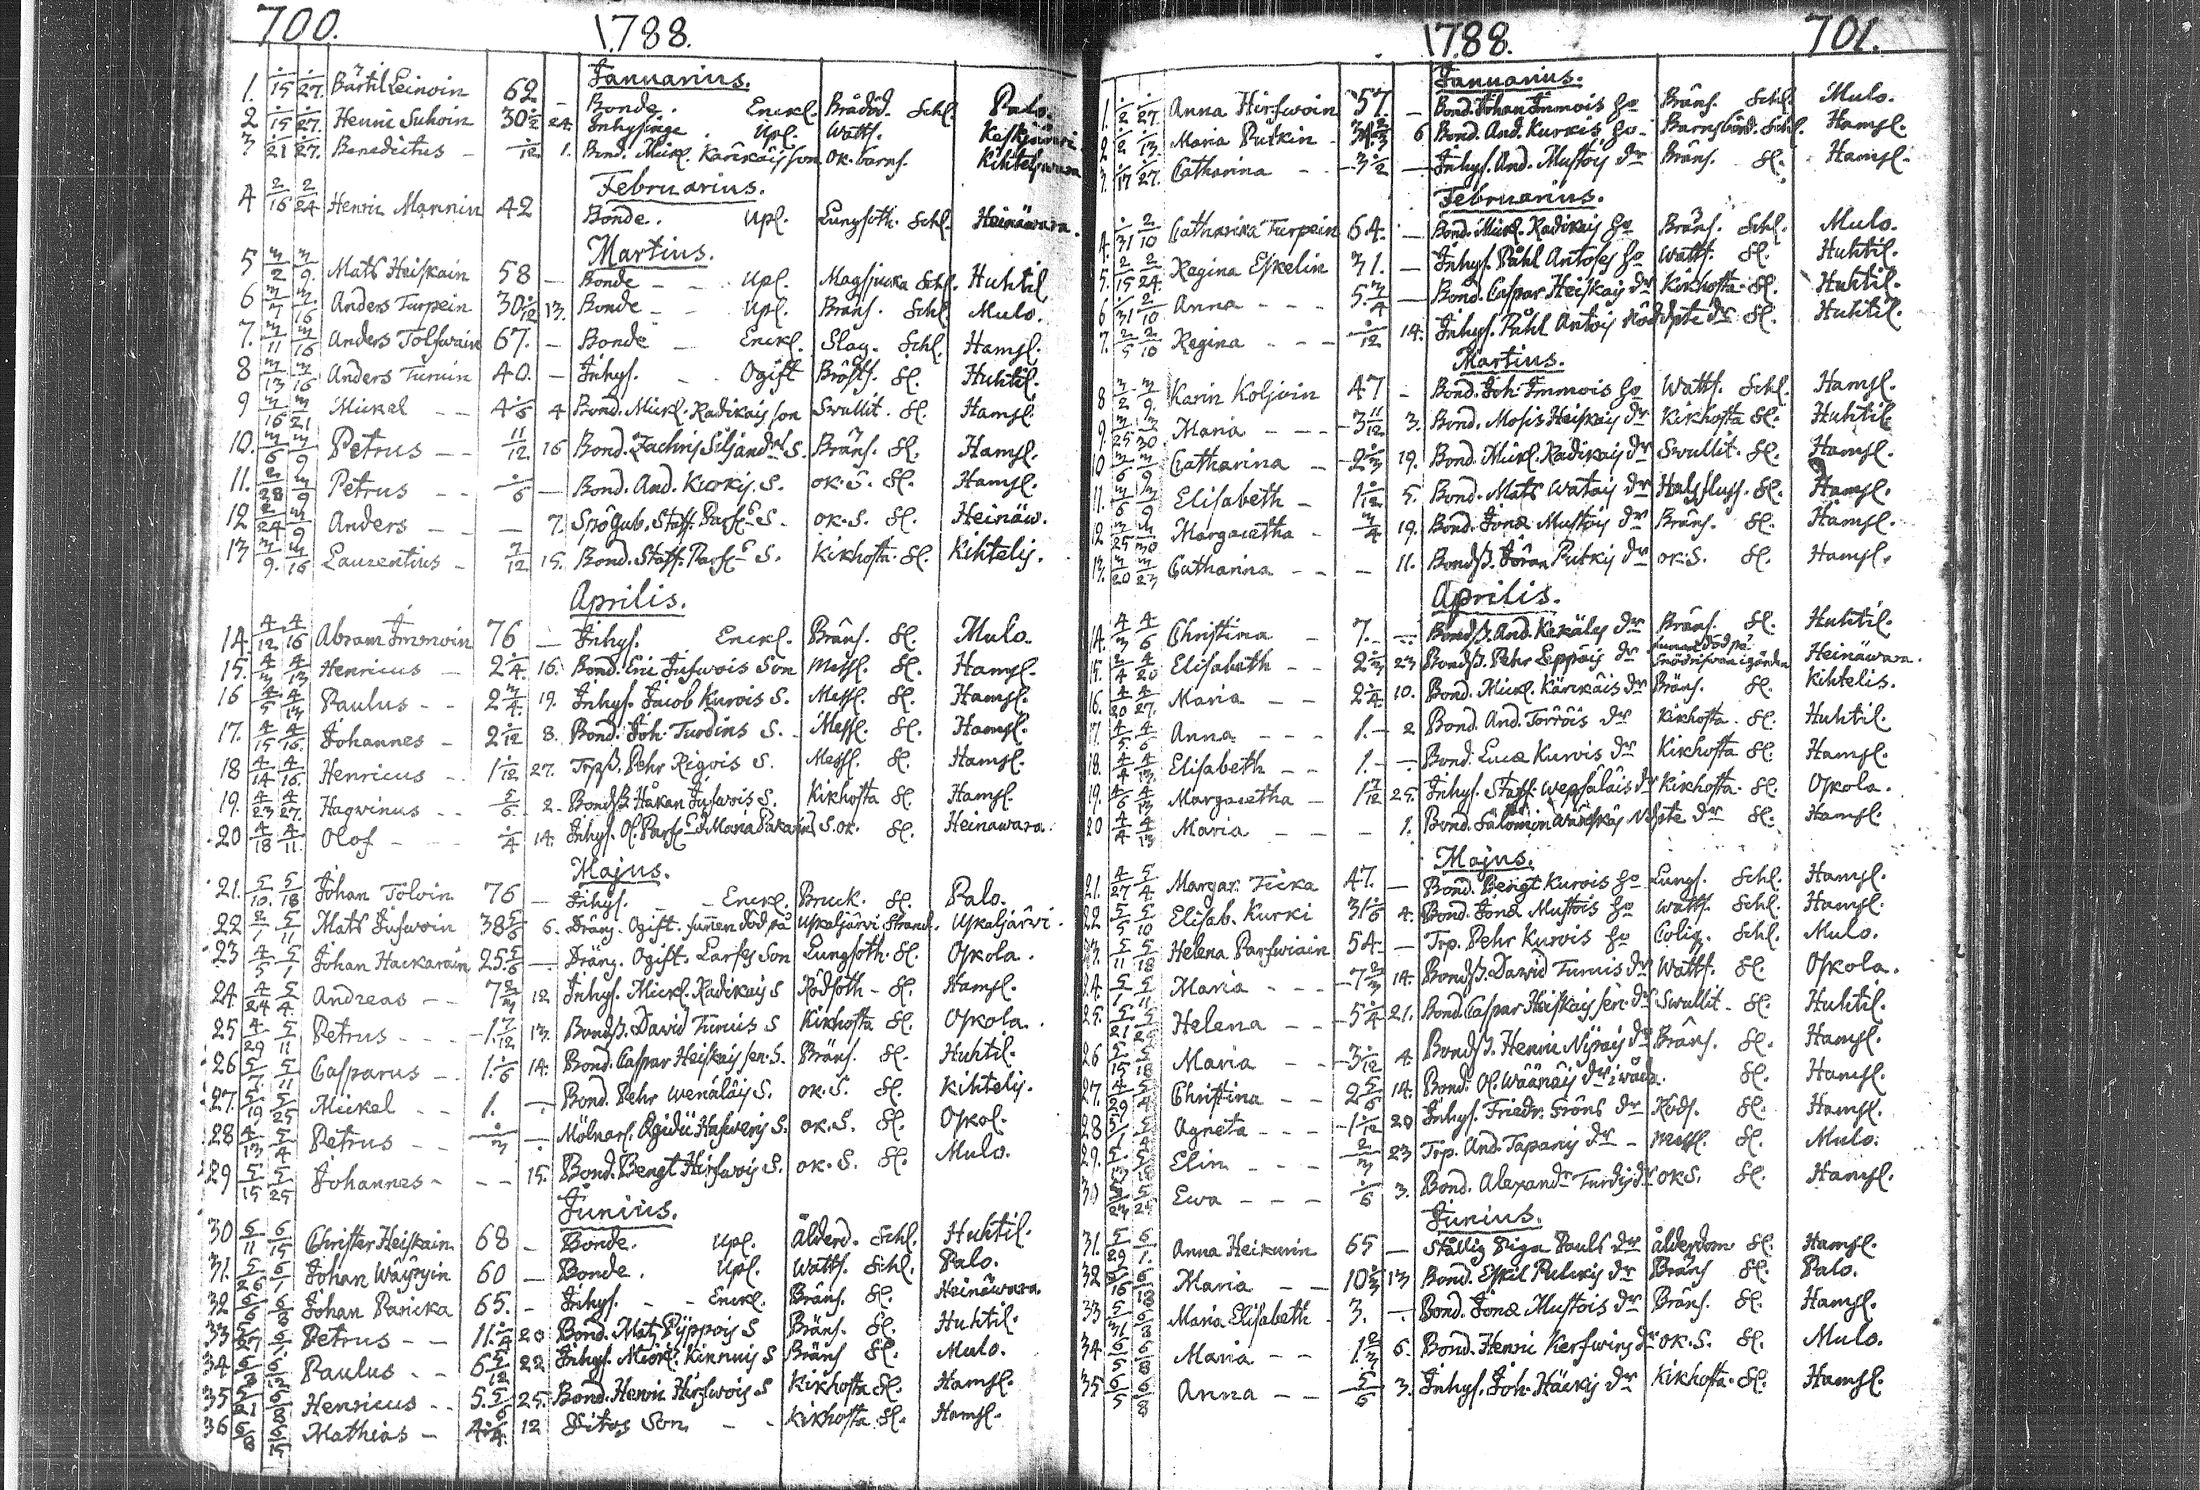 700. 1788.
Januarius.
1. 1/15 1/27. Bärtil Leinoin 62 – Bonde. Enckl. Brådöd. Schl. Palo.
2 1/15 1/27. Henric Suhoin 30 1/2 24. Inhysinge. Upl. Watts. Keskijärvi.
3 1/21 1/27. Benedictus – 1/12 1. Bond. Mick. Kärckäis son ok. barns. Kihtelswara
Februarius.
4 2/16 2/24 Henric Mannin 42 Bonde. Upl. Lungsoth. Schl. Heinäwara.
Martius.
5 3/2 3/9. Mats Heiskain 58 – Bonde – – Upl. Magsjuka Schl. Huhtil
6 3/7 3/16 Anders Turpein 30 1/12 13. Bonde – – Upl. Bräns. Schl. Mulo.
7. 3/11 3/16 Anders Tolfwain 67. – Bonde – Enckl. Slag. Schl. Hamsl.
8 3/13 3/16 Anders Turuin 40. – Inhys. – – Ogift Bröstf. Sl. Huhtil.
9 3/16 3/21 Mickel – – 4 1/6 4 Bond. Mick. Radikais son Swullit. Sl. Hamsl.
10. 3/6 3/9 Petrus – – 11/12 16 Bond. Zachris Siljand. S. Bräns. Sl. Hamsl.
11. 2/28 3/9 Petrus – – 1/6 – Bond. And. Kurkis. S. ok. S. Sl. Hamsl.
12 2/24 3/9 Anders – – 7. Spögub. Staff. Pars. S. ok. S. Sl. Heinäw.
13 3/9. 3/16 Laurentius – 7/12 15. Bond. Staff. Pars. S. Kikhosta. Sl. Kihtelis.
Aprilis.
14. 4/12 4/16 Abram Immoin 76 – Inhys. Enckl. Bräns. Sl. Mulo.
15. 4/3 4/13 Henricus – 2 1/4 16. Bond. Eric Jufwois Son Messl. Sl. Hamsl.
16 4/5 4/13 Paulus – – 2 3/4. 19. Inhys. Jacob Kurois S. Messl. Sl. Hamsl.
17. 4/15 4/16. Johannes – 2 1/12 8. Bond. Joh. Turdins S. Messl. Sl. Hamsl.
18 4/14 4/16. Henricus – 1 1/12 27. Trps. Pehr Rigois S. Messl. Sl. Hamsl.
19. 4/23 4/27. Hagwinus – – 5/6. 2. Bonds. Håkan Jufwois S. Kikhosta Sl. Hamsl.
20 4/18 4/11. Olof – – 1/4 14. Inhys. Ol. Pars. & Maria Pakarin S. ok. Sl. Heinawara.
Majus.
21. 5/10. 5/18 Johan Tolvin 76 – Inhys. – Enckl. Bruck. Sl. Palo.
22 2/1 5/11 Mats Jufwoin 38 5/6 6. Dräng. Ogift. funnen död på Uskaljärvi Strand. Uskaljärvi.
23 4/5 5/1 Johan Hackarain 25. 5/6 – Dräng. Ogift. Larses Son Lungsoth. Sl. Oskola.
24 4/24 5/4 Andreas – – 7 2/3 12 Inhys. Mick. Radikais S Rödsoth – Sl. Hamsl.
25 4/29 5/11 Petrus – – – 1 7/12 13. Bonds. David Turuis S Kikhosta Sl. Oskola.
26 5/7. 5/11 Casparus – – 1. 1/6 14. Bond. Caspar Heiskais sen. S. Bräns. Sl. Huhtil.
27. 5/19 5/25 Mickel – – 1. – Bond. Pehr Wenäläis S. ok. S. Sl. Kihtelis.
28 4/13 5/4 Petrus – – 1/3 – Mölnars. Ägidii Hafweris S. ok. S. Sl. Oskol.
29 5/15 5/25 Johannes – – – 15. Bond. Bengt Hirfwois S. ok. S. Sl. Mulo.
Junius.
30 5/11 6/15 Christer Heiskain 68 – Bonde. Upl. Ålderd. Schl. Huhtil.
31. 5/26 6/1 Johan Wäyryin 60 – Bonde. Upl. Watts. Schl. Palo.
32 6/6 6/8 Johan Pancka 65. – Inhys. – – Enckl. Bräns. Sl. Heinäwara.
33 5/27 6/1. Petrus – – 11. 1/4 20 Bond. Mats Pyppois S Bräns. Sl. Huhtil.
34 6/8 6/15 Paulus – – 6 5/12 22. Inhys. Mick. Kinnuis S Bräns Sl. Mulo.
35 5/21 6/8 Henricus – – 5. 5/6 25. Bond. Henric Hirfwois S Kikhosta Sl. Hamsl.
36 6/8 6/15 Mathias – 4 1/4. 12 Ditos Son – – Kikhosta Sl. Hamsl.
1788. 701.
Januarius.
1. 1/2 1/27. Anna Hirfwoin 57. – Bond. Johan Immois ho Bräns. Schl. Mulo.
2. 1/2 1/13. Maria Putkin – 34 2/3 6 Bond. And. Kurkis ho – Barnsbörd. Schl. Hamsl.
3. 1/17 1/27. Catharina – – 3 1/2 – Inhys. And. Mustois dr Bräns. Sl. Hamsl.
Februarius.
4. 1/31 2/10 Catharina Turpein 64. – Bond. Mick. Radikais ho Bräns. Schl. Mulo.
5. 2/15 2/24. Regina Eskelin 31. – Inhys. Påhl Antoses ho Watts. Sl. Huhtil.
6 1/31 2/10 Anna – – – 5. 3/4 – Bond. Caspar Heiskais dr Kikhosta Sl. Huhtil.
7. 2/5 2/10 Regina – – – 1/12 14. Inhys. Påhl Antois nöddöpte dr Sl. Huhtil.
Martius.
8 3/2 3/9. Karin Koljoin 47 – Bond. Joh. Immois ho Watts. Schl. Hamsl.
9. 3/25 3/30 Maria – – – 3 11/12 3. Bond. Mosis Heiskais dr Kikhosta Sl. Huhtil.
10 3/6 3/9 Catharina – – 2 1/3 19. Bond. Mick. Radikais dr Swullit. Sl. Hamsl.
11. 3/6 3/9 Elisabeth – 1 1/12 5. Bond. Mats Watais dr Halsfluss. Sl. Hamsl.
12 3/25 3/30 Margaretha – 3/4 19. Bond. Jonæ Mustois dr Bräns. Sl. Hamsl.
13. 3/20 3/23 Catharina – – – 11. Bonds. Jöran Putkis dr ok. S. Sl. Hamsl.
Aprilis.
14. 4/3 4/6 Christina – 7. – Bonds. And. Kekäles dr Bräns. Sl. Huhtil.
15. 2/4 4/20 Elisabeth – – 2 1/3 23 Bonds. Pehr Leppäis dr funnen död på snödrifwan i gården Heinäwara.
16. 4/20 4/27. Maria – – 2 1/4 10. Bond. Mick. Kärckäis dr Bräns. Sl. Kihtelis.
17 4/5 4/6 Anna – – – 1. – 2 Bond. And. Torröis dr Kikhosta. Sl. Huhtil.
18. 4/4 4/13 Elisabeth – – 1. – Bond. Lucæ Kurvis dr Kikhosta Sl. Hamsl.
19. 4/6 4/13 Margaretha – 1 7/12 25. Inhys. Staff. Wepsäläis dr Kikhosta. Sl. Oskola.
20 4/4 4/13 Maria – – – 1. Bond. Salomon Wänskäs Ndpte dr Sl. Hamsl.
Majus.
21. 4/27 5/4 Margar. Ticka 47. – Bond. Bengt Kurois ho Lungs. Schl. Hamsl.
22 5/5 5/10 Elisab. Kurki 31 1/6 4. Bond. Jonæ Mustois ho Watts. Schl. Hamsl.
23. 5/11 5/18 Helena Parfwiain 54 – Trp. Pehr Kurvis ho Coliq. Schl. Mulo.
24. 5/1 5/11 Maria – – – 7 2/3 14. Bonds. David Turuis dr Watts. Sl. Oskola.
25. 5/21 5/25 Helena – – 5 1/4 21. Bond. Caspar Heiskais sen. dr Swullit – Sl. Huhtil.
26 5/15 5/18 Maria – – 3 1/12 4 Bonds. Henric Nipais dr Bräns. Sl. Hamsl.
27. 4/29 5/4 Christina – – 2 5/6 14. Bond. Ol. Wäänäis dr i wåda. Sl. Hamsl.
28 5/1 5/4 Agneta – – – 1 1/12 20 Inhys. Friedr. Fröns dr Röds. Sl. Hamsl.
29. 5/13 5/18 Elin – – – 2/3 23 Trp. And. Tapanis dr – Messl. Sl. Mulo.
30 5/23 5/25 Ewa – – – 1/6 3. Bond. Alexandr Turdis dr ok S. Sl. Hamsl.
Junius.
31. 5/29 6/1. Anna Heikurin 65 – Ställig Piga Pauls dr ålderdom Sl. Hamsl.
32 5/16 6/13 Maria – – 10 1/3 13 Bond. Eskil Pulckis dr Bräns Sl. Palo.
33 5/31 6/8 Maria Elisabeth 3. – Bond. Jonæ Mustois dr Bräns. Sl. Hamsl.
34. 6/5 6/8 Maria – – 1. 2/3 6. Bond. Henric Kerfwins dr ok. S. Sl. Mulo.
35 6/5 6/8 Anna – – 5/6 3. Inhys. Joh. Häckis dr Kikhosta. Sl. Hamsl.